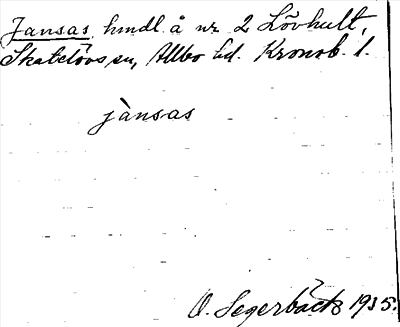 Jansas hmdl å nr 2 Lövhult,
Skatelövs sn, Allbo hd. Kronob. l.
jànsas
O. Segerbäck 1935.